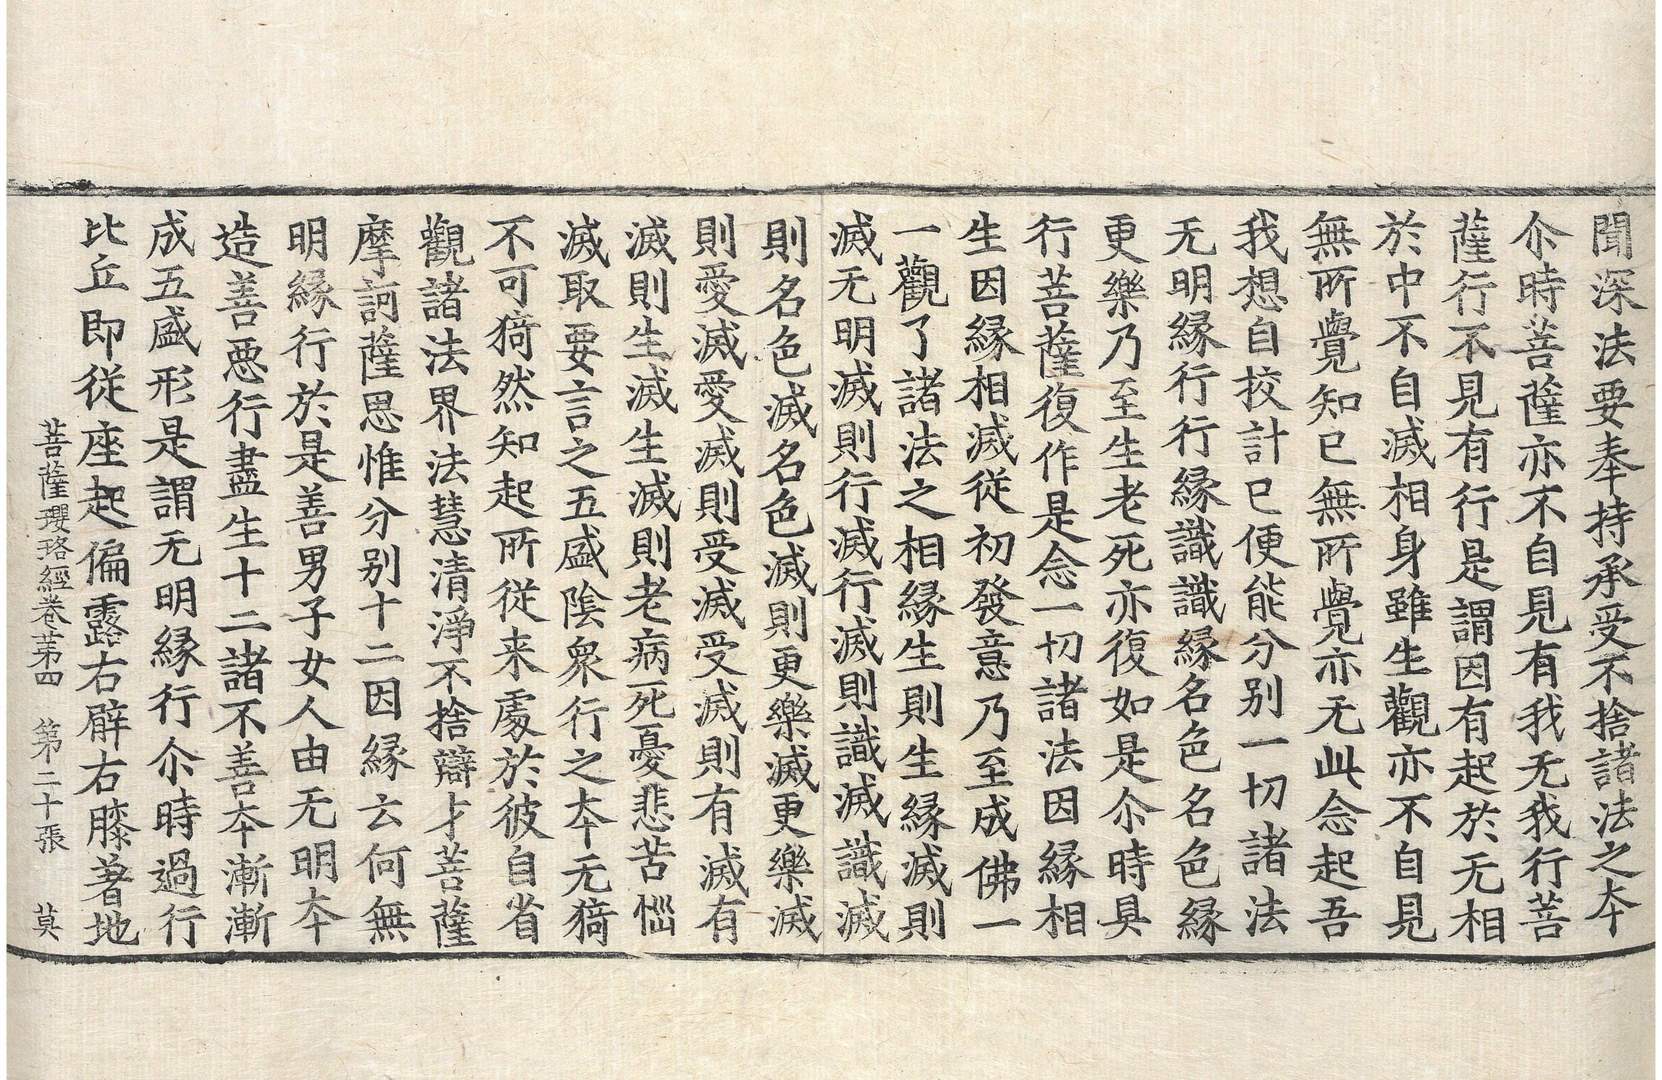 聞深法要奉持承受不捨諸法之夲
尒時菩薩亦不自見有我无我行菩
薩行不見有行是謂因有起於无相
於中不自滅相身雖生觀亦不自見
無所覺知已無所覺亦无此念起吾
我想自校計已便能分別一切諸法
无明緣行行緣識識緣名色名色緣
更樂乃至生老死亦復如是尒時具
行菩薩復作是念一切諸法因緣相
生因緣相滅從初發意乃至成佛一
一觀了諸法之相緣生則生緣滅則
滅无明滅則行滅行滅則識滅識滅
則名色滅名色滅則更樂滅更樂滅
則愛滅愛滅則受滅受滅則有滅有
滅則生滅生滅則老病死憂悲苦惱
滅取要言之五盛陰衆行之夲无猗
不可猗然知起所從来處於彼自省
觀諸法界法慧清淨不捨辯才菩薩
摩訶薩思惟分別十二因緣云何無
明緣行於是善男子女人由无明夲
造善惡行盡生十二諸不善夲漸漸
成五盛形是謂无明緣行尒時過行
比丘即從座起偏露右臂右膝著地
菩薩瓔珞經卷苐四 第二十張 莫